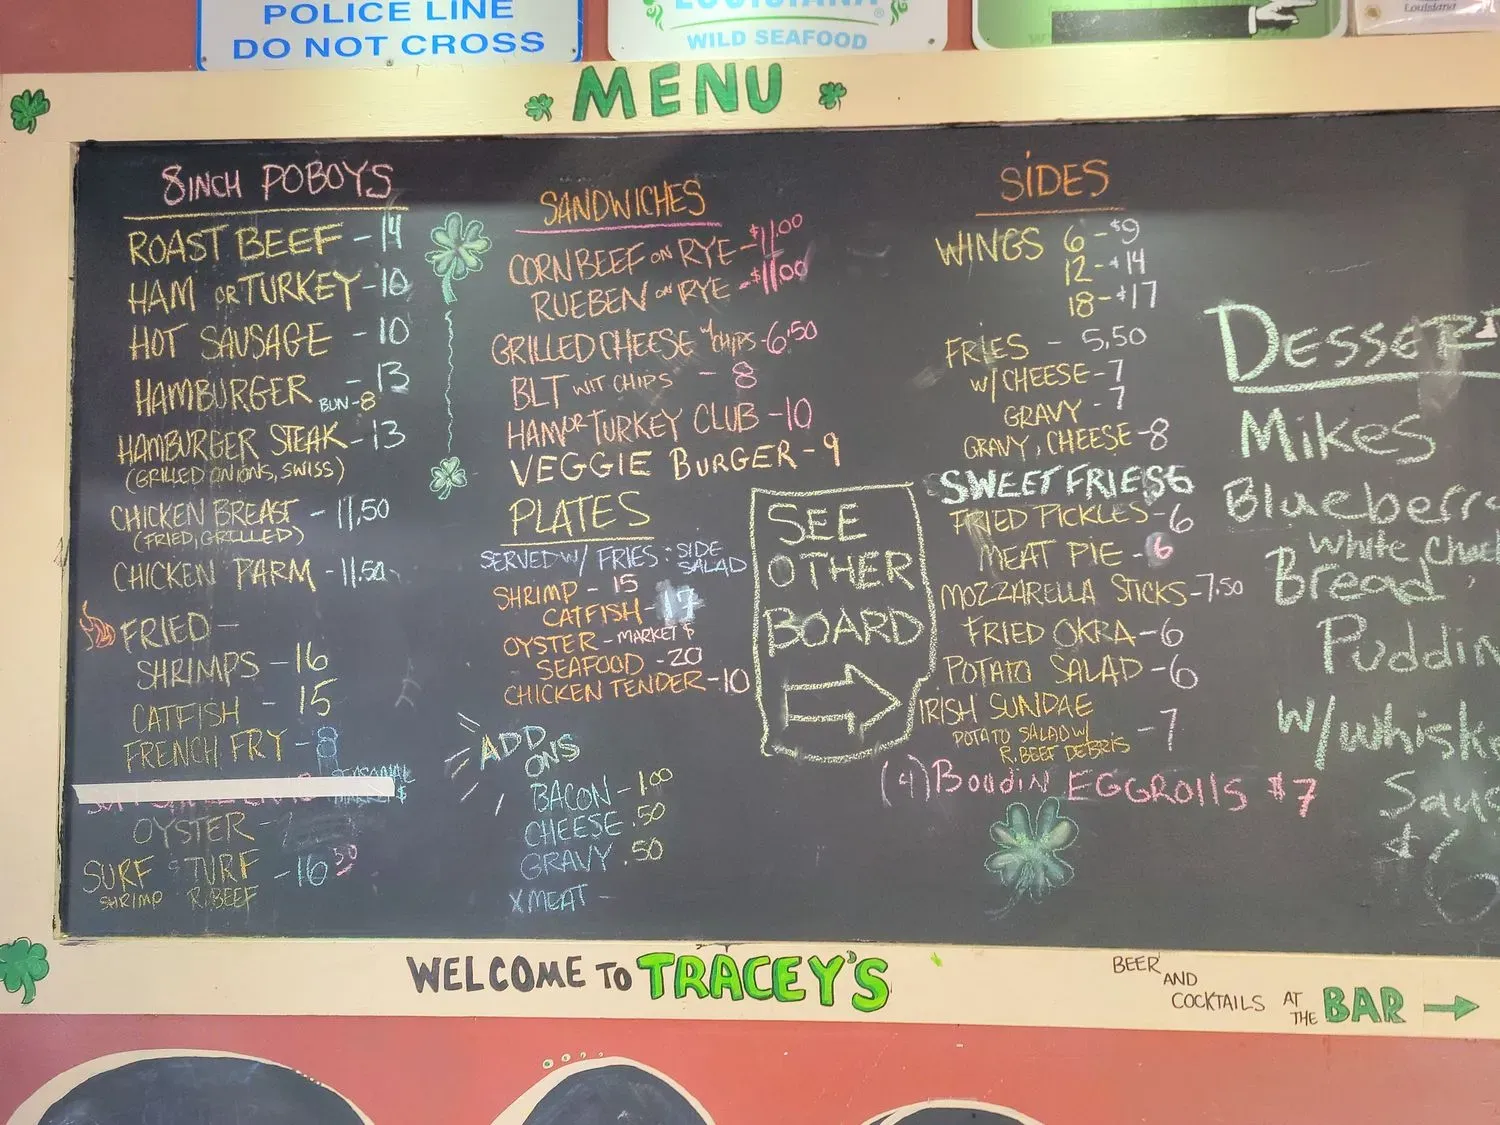 POLICE LINE
DO NOT CROSS
LOUISIANA
®
WILD SEAFOOD
Louisiana
MENU
8INCH POBOYS
ROAST BEEF - 14
HAM OR TURKEY - 10
HOT SAUSAGE - 10
HAMBURGER - 13
BUN - 8
HAMBURGER STEAK - 13
(GRILLED ONIONS, SWISS)
CHICKEN BREAST - 11.50
(FRIED, GRILLED)
CHICKEN PARM - 11.50
FRIED -
SHRIMPS - 16
CATFISH - 15
FRENCH FRY - 8
SEASONAL
MARKET $
OYSTER -
SURF & TURF - 16 50
SHRIMP R. BEEF
SANDWICHES
CORNBEEF ON RYE - $11.00
RUEBEN ON RYE - $11.00
GRILLED CHEESE W/ CHIPS - 6.50
BLT WIT CHIPS - 8
HAM OR TURKEY CLUB - 10
VEGGIE BURGER - 9
PLATES
SERVED W/ FRIES : SIDE
SALAD
SHRIMP - 15
CATFISH - 17
OYSTER - MARKET $
SEAFOOD - 20
CHICKEN TENDER - 10
ADD
ONS
BACON - 1.00
CHEESE .50
GRAVY .50
X MEAT -
SEE
OTHER
BOARD
SIDES
WINGS 6 - $9
12 - $14
18 - $17
FRIES - 5.50
W/ CHEESE - 7
GRAVY - 7
GRAVY, CHEESE - 8
SWEET FRIES 6
FRIED PICKLES - 6
MEAT PIE - 6
MOZZARELLA STICKS - 7.50
FRIED OKRA - 6
POTATO SALAD - 6
IRISH SUNDAE
POTATO SALAD W/
R. BEEF DEBRIS - 7
(4) Boudin EGGROllS $7
DESSERT
Mikes
Blueberry
White Choc
Bread
Puddin
w/ whiske
Sauc
$6
WELCOME TO TRACEY'S
BEER
AND
COCKTAILS AT
THE BAR